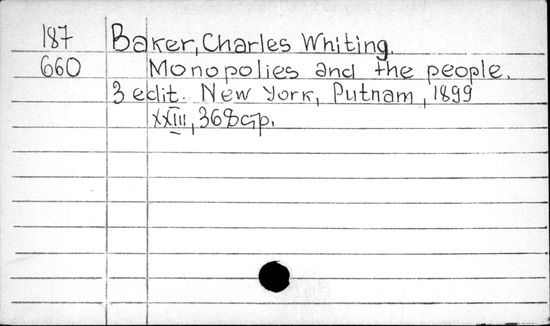 187 Baker, Charles Whiting.
660 Monopolies and the people.
3 edit. New York, Putnam, 1899
XXIII, 368 cp.